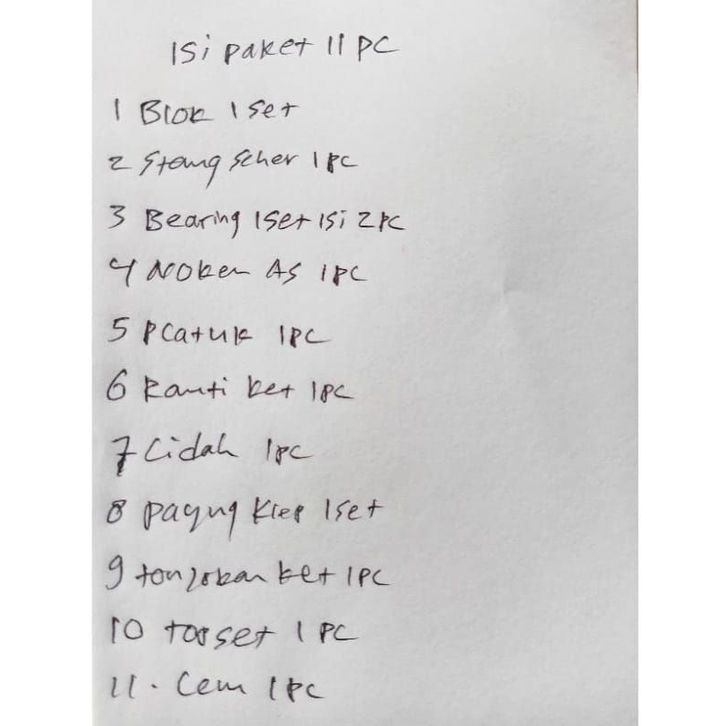 Isi paket 11 PC
1 Blok 1 Set
2 Stang Seher 1 PC
3 Bearing 1 Set Isi 2 PC
4 Noken AS 1 PC
5 Pcatuk 1 PC
6 Ranti ket 1 PC
7 Lidah 1 PC
8 Payung Klep 1 Set
9 tonjokan ket 1 PC
10 topset 1 PC
11. Cem 1 PC